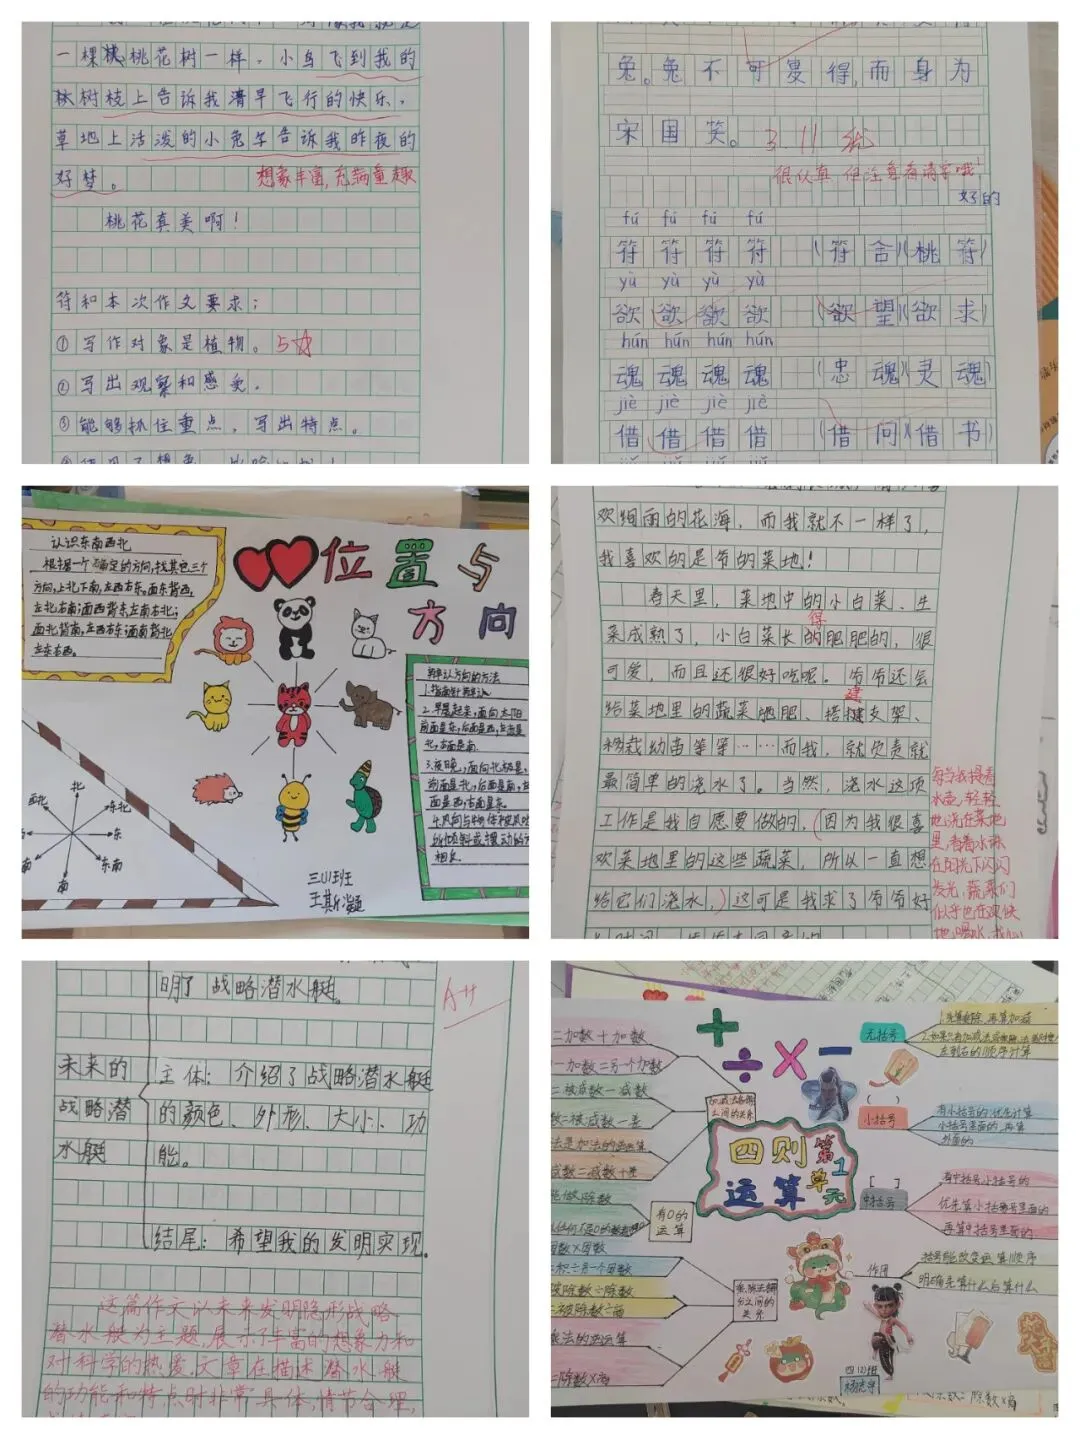 一棵桃花树一样。小鸟飞到我的
树枝上告诉我清早飞行的快乐。
草地上活泼的小兔子告诉我昨夜的
好梦。
想象丰富,充满童趣
桃花真美啊!
符和本次作文要求:
①写作对象是植物。5☆
②写出观察和感受。
③能够抓住重点,写出特点。
兔。兔不可复得,而身为
宋国笑。
3.11 优
很认真,但注意看清字哦!
好的
fú fú fú fú
符符符符(符合)(桃符)
yù yù yù yù
欲欲欲欲(欲望)(欲求)
hún hún hún hún
魂魂魂魂(忠魂)(灵魂)
jiè jiè jiè jiè
借借借借(借问)(借书)
位置与
方向
认识东南西北
根据一个确定的方向,找其它三个
方向,上北下南,左西右东。面东背西,
左北右南;面西背东,左南右北;
面北背南,左西右东;面南背北,
左东右西。
北
西北
东北
东
东南
南
辨认方向的方法
1.指南针辨认
2.早晨起来,面向太阳
前面是东,后面是西,左面是
北,右面是南。
3.夜晚,面向北极星,
前面是北,后面是南,左
面是西,右面是东。
相反。
三(1)班
欢绚丽的花海,而我就不一样了,
我喜欢的是爷爷的菜地!
春天里,菜地中的小白菜、生
菜成熟了,小白菜长的肥肥的,很
得
可爱,而且还很好吃呢。爷爷还会
建
给菜地里的蔬菜施肥、搭揵支架、
移栽幼苗等等……而我,就负责就
最简单的浇水了。当然,浇水这项
工作是我自愿要做的,(因为我很喜
欢菜地里的这些蔬菜,所以一直想
给它们浇水,)这可是我求了爷爷好
每当我提着
水壶,轻轻
地浇在菜地
里,看着水珠
在阳光下闪闪
发光,蔬菜们
似乎也在欢快
明了战略潜水艇。
A++
未来的
战略潜
水艇
主体:介绍了战略潜水艇
的颜色、外形、大小、功
能。
结尾:希望我的发明实现。
这篇作文以未来发明隐形战略
潜水艇为主题,展示了丰富的想象力和
对科学的热爱。文章在描述潜水艇
的功能和特点时非常具体,情节合理,
+ ÷ × −
四则第1
运算单元
加减法各部
之间的关系
有0的
运算
乘除法部
分之间的
关系
无括号
左到右的顺序计算
( )
小括号
有小括号的优先计算
小括号里面的,再算
外面的
[ ]
中括号
有中括号小括号的
优先算小括号里面的
再算中括号里面的
作用
括号能改变运算顺序
明确先算什么后算什么
四(2)班